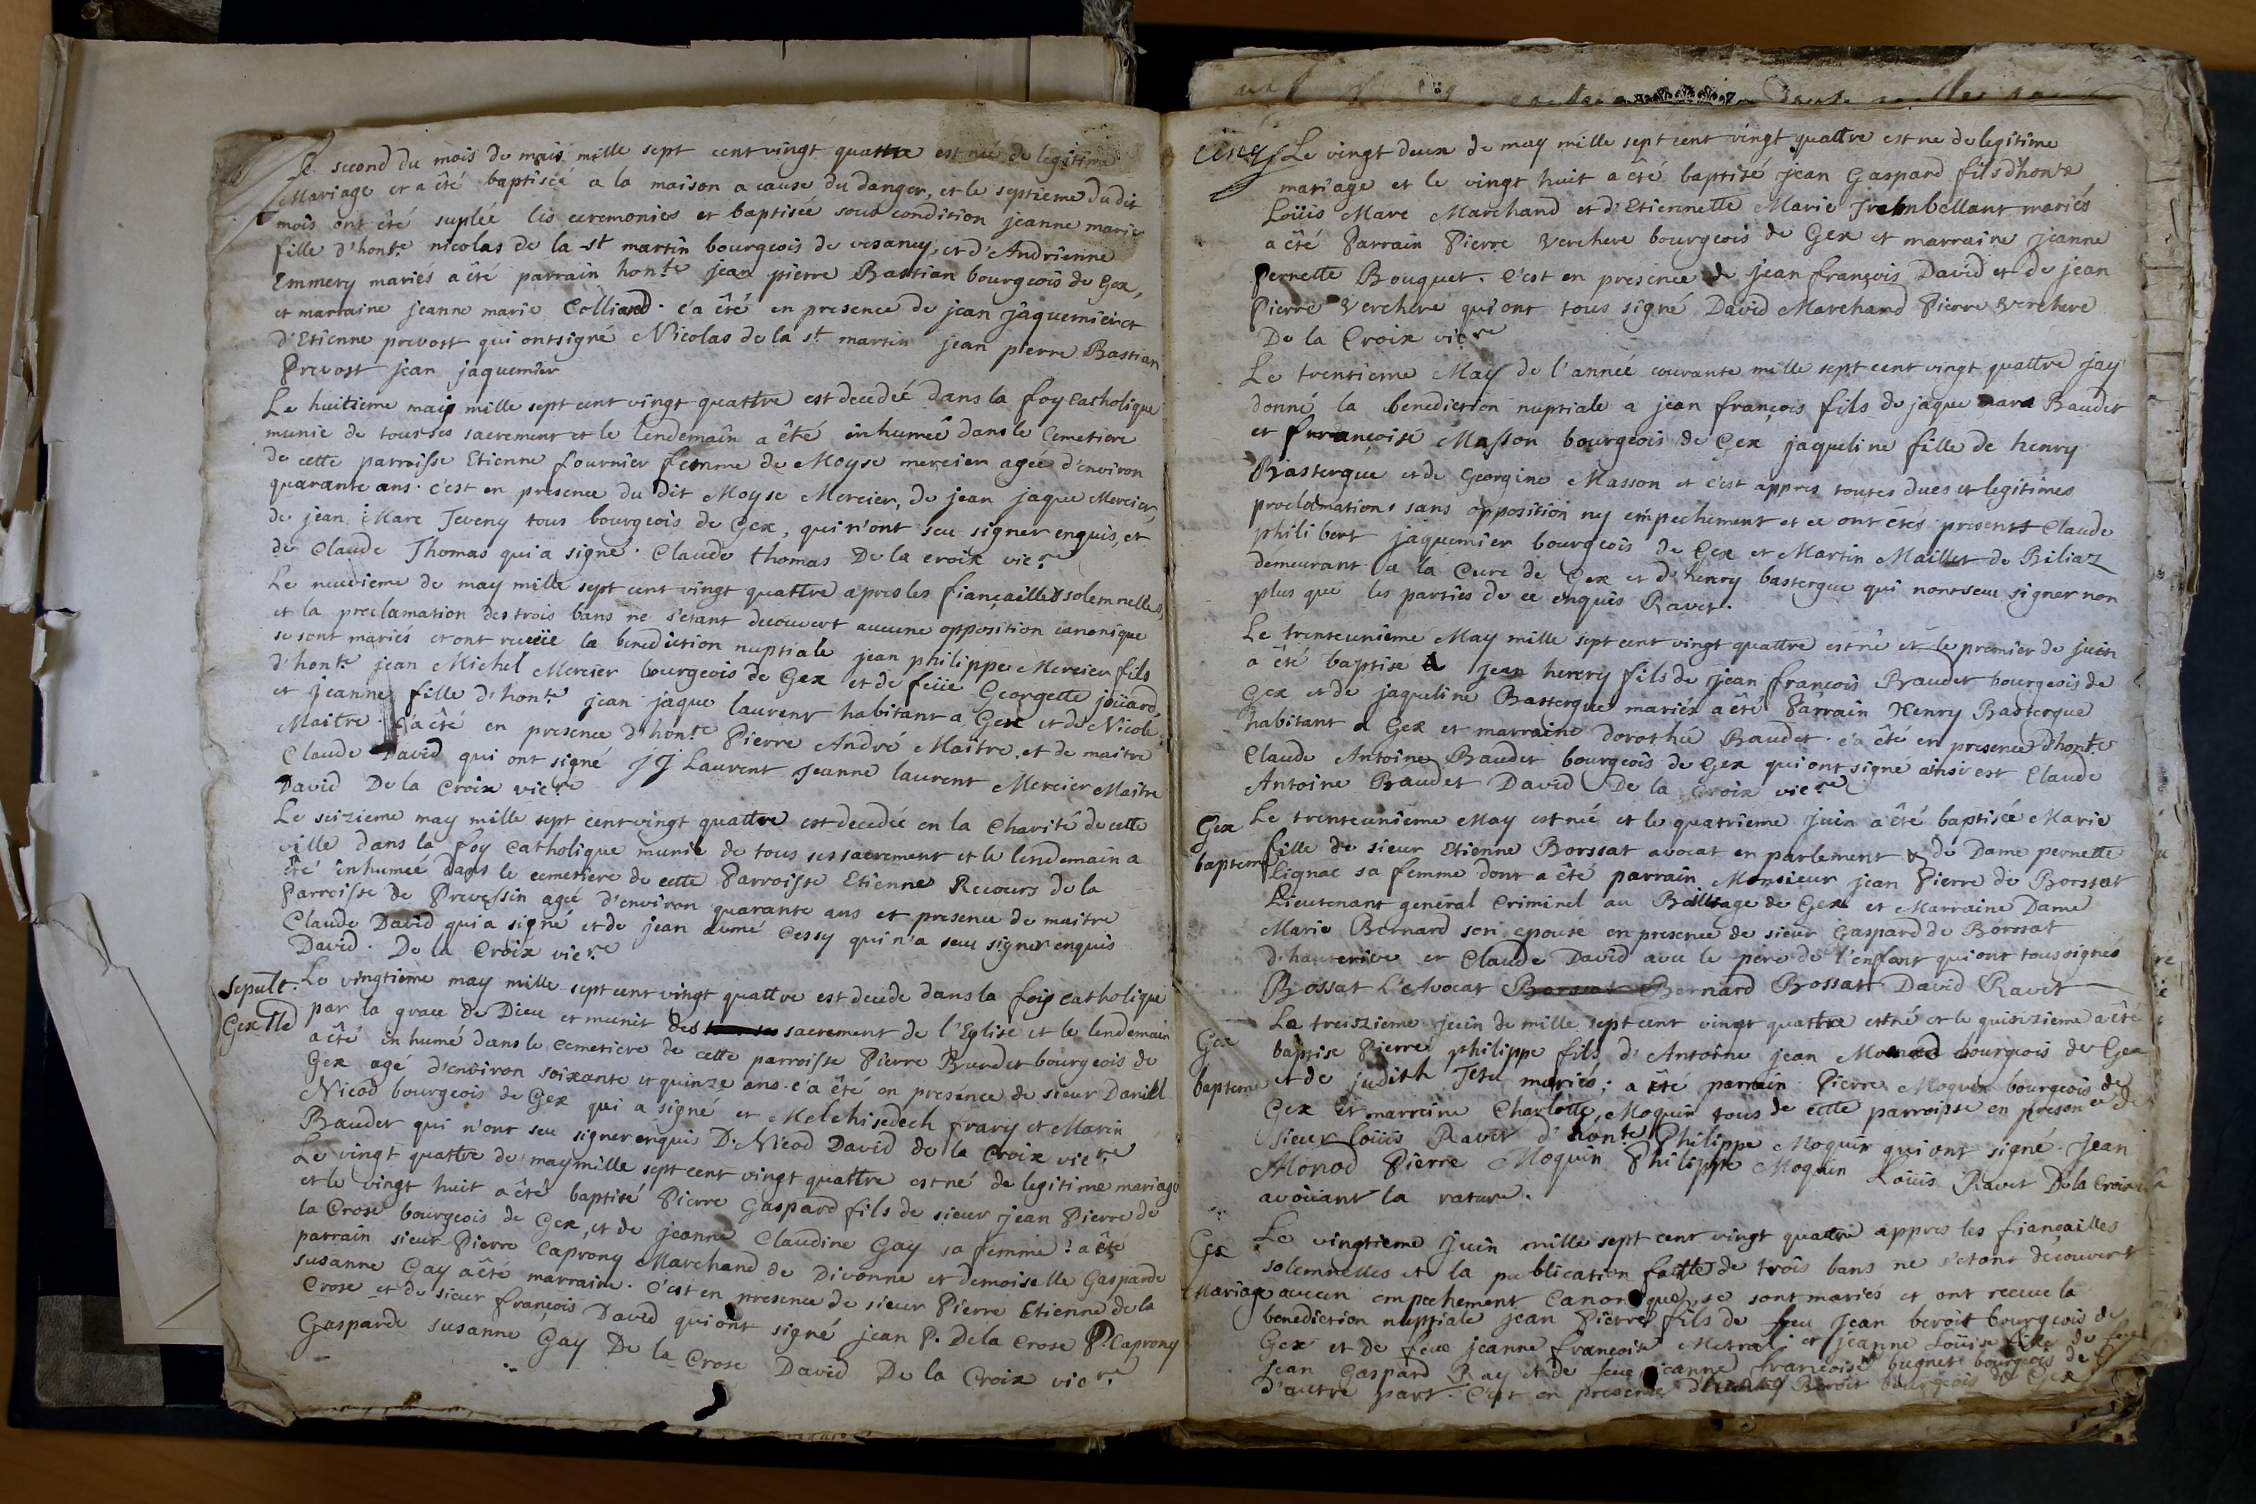 Le second du mois de mais mille sept cent vingt quattre est née de legitime
Mariage et a été baptiseé a la maison a cause du danger, et le septieme du dit
mois ont été suplée les ceremonies et baptisée sous condition jeanne marie
fille d'hon.te nicolas de la st martin bourgeois de vesancy, et d'Andrienne
Emmery mariés a été parrain hon.te jean pierre Bastian bourgeois de Gex,
et marraine jeanne marie Colliand. c'a été en presence de jean jâquemier et
d'Etienne prevost qui ont signé Nicolas de la st martin jean pierre Bastian
Prevost jean jaquemier
Le huitieme maij mille sept cent vingt quattre est decedeé dans la foy Catholique
munie de tous ses sacrement et le lendemain a été inhumeé dans le Cemetiere
de cette parroisse Etienne fournier femme de Moyse mercier ageé d'environ
quarante ans. c'est en presence du dit Moyse Mercier, de jean jaque Mercier,
de jean Marc Teveny tous bourgeois de Gex, qui n'ont seu signer enquis, et
de Claude Thomas qui a signé. Claude thomas De la croix vic.re
Le neuvieme de may mille sept cent vingt quattre apres les fiançailles solemnelles,
et la proclamation des trois bans ne s'etant decouvert aucune opposition canonique
se sont mariés et ont receüe la benediction nuptiale jean philippe Mercier fils
d'hon.te jean Michel Mercier bourgeois de Gex et de feüe Georgette joüard,
et jeanne fille d'hon.te jean jâque laurent habitant a Gex et de Nicole
Maitre. c'a été en presence d'hon.te Pierre André Maitre, et de maitre
Claude David qui ont signé JJ Laurent Jeanne laurent Mercier Maitre
David De la Croix vic.re
Le seizieme may mille sept cent vingt quattre est decedeé en la Charité de cette
ville dans la foy catholique munie de tous ses sacrement et le lendemain a
été inhumeé dans le cemetiere de cette Parroisse Etienne Recours de la
Parroisse de Prevessin ageé d'environ quarante ans et presence de maitre
Claude David qui a signé et de jean aumé Cessy qui n'a seu signer enquis
David. De la Croix vic.re
Sepult.
Gex
Le vingtieme may mille sept cent vingt quattre est decede dans la foij catholique
par la grace de Dieu et munit des sacrement de l'Eglise et le lendemain
a été inhumé dans le cemetiere de cette parroisse Pierre Burdet bourgeois de
Gex agé d'environ soixante et quinze ans. c'a été en presence de sieur Daniel
Nicod bourgeois de Gex qui a signé et Melchisedech frary et Marin
Baudet qui n'ont seu signer enquis D. Nicod David de la Croix vic.re
Le vingt quattre de may mille sept cent vingt quattre est né de legitime mariage
et le vingt huit a été baptisé Pierre Gaspard fils de sieur jean Pierre de
la Crose bourgeois de Gex, et de jeanne Claudine Gay sa femme : a été
parrain sieur Pierre Caprony Marchand de Divonne et demoiselle Gasparde
susanne Gay a été marraine. C'est en presence de sieur Pierre Etienne de la
Crose et de sieur françois David qui ont signé jean P. De la Crose P. Caprony
Gasparde susanne Gay De la Crose David De la Croix vic.re
Le vingt deux de may mille sept cent vingt quattre est ne de legitime
mariage et le vingt huit a été baptisé jean Gaspard fils d'hon.te
Loüis Marc Marchand et d'Etiennette Marie mariés
a été Parrain Pierre Verchere bourgeois de Gex et marraine jeanne
Pernette Bouquet. C'est en presence de jean françois David et de jean
Pierre Verchere qui ont tous signé David Marchand Pierre Verchere
De la Croix vic.re
Le trentieme May de l'anneé courante mille sept cent vingt quattre jay
donné la benediction nuptiale a jean françois fils de jaque Baudet
et françoise Masson bourgeois de Gex jaqueline fille de henry
Bastergue et de Georgine Masson et c'est appres toutes dües et legitimes
proclamations sans opposition ny empechement et ce ont étés presents Claude
philibert jaquemier bourgeois de Gex et Martin Maillet de Biliaz
demeurant a la Cure de Gex et d'henry bastergue qui nont seu signer non
plus que les parties de ce enquis Ravet.
Le trenteunième May mille sept cent vingt quattre est né et le premier de juin
a été baptise jean henry fils de jean françois Baudet bourgeois de
Gex et de jaqueline Bastergue mariés a été Parrain Henry Bastergue
habitant a Gex et marraine dorothée Baudet. c'a été en presence d'hon.te
Claude Antoine Baudet bourgeois de Gex qui ont signé ainsi est Claude
Antoine Baudet David De la Croix vic.re
Gex
baptem
Le trenteunieme May est née et le quatrieme juin a été baptisée Marie
fille de sieur Etienne Borssat avocat en parlement & de Dame pernette
Lignac sa femme dont a été parrain Monsieur jean Pierre de Borssat
Lieutenant general Criminel au Baillage de Gex et Marraine Dame
Marie Bernard son epouse en presence de sieur Gaspard de Borssat
d'hauterive et Claude David avec le pere de l'enfant qui ont tous signés
Bossat L'Avocat Bernard Bossat David Ravet
Gex
baptem
Le treiszieme juin de mille sept cent vingt quattre est né et le quiszieme a été
baptise Pierre philippe fils d'Antoine jean Monod bourgeois de Gex
et de judith mariés ; a été parrain Pierre Moquin bourgeois de
Gex et marreine Charlotte Moquin tous de cette parroisse en presence de
sieur Loüis Ravet d'hon.te Philippe Moquin qui ont signé. Jean
Monod Pierre Moquin Philippe Moquin Loüis Ravet De la Croix
avoüant la rature.
Gex
Mariage
Le vingtieme juin mille sept cent vingt quattre appres les fiancailles
solemnelles et la publication faitte de trois bans ne s'etant découvert
aucun empechement Canonique, se sont mariés et ont receue la
benediction nuptiale jean Pierre fils de feu jean beroit bourgeois de
Gex et de feue jeanne françoise Metral et jeanne Loüise fille de feu
jean Gaspard Ray et de feue jeanne françoise bugnet bourgeois de
d'autre part. C'est en presence Beroit bourgeois de Gex